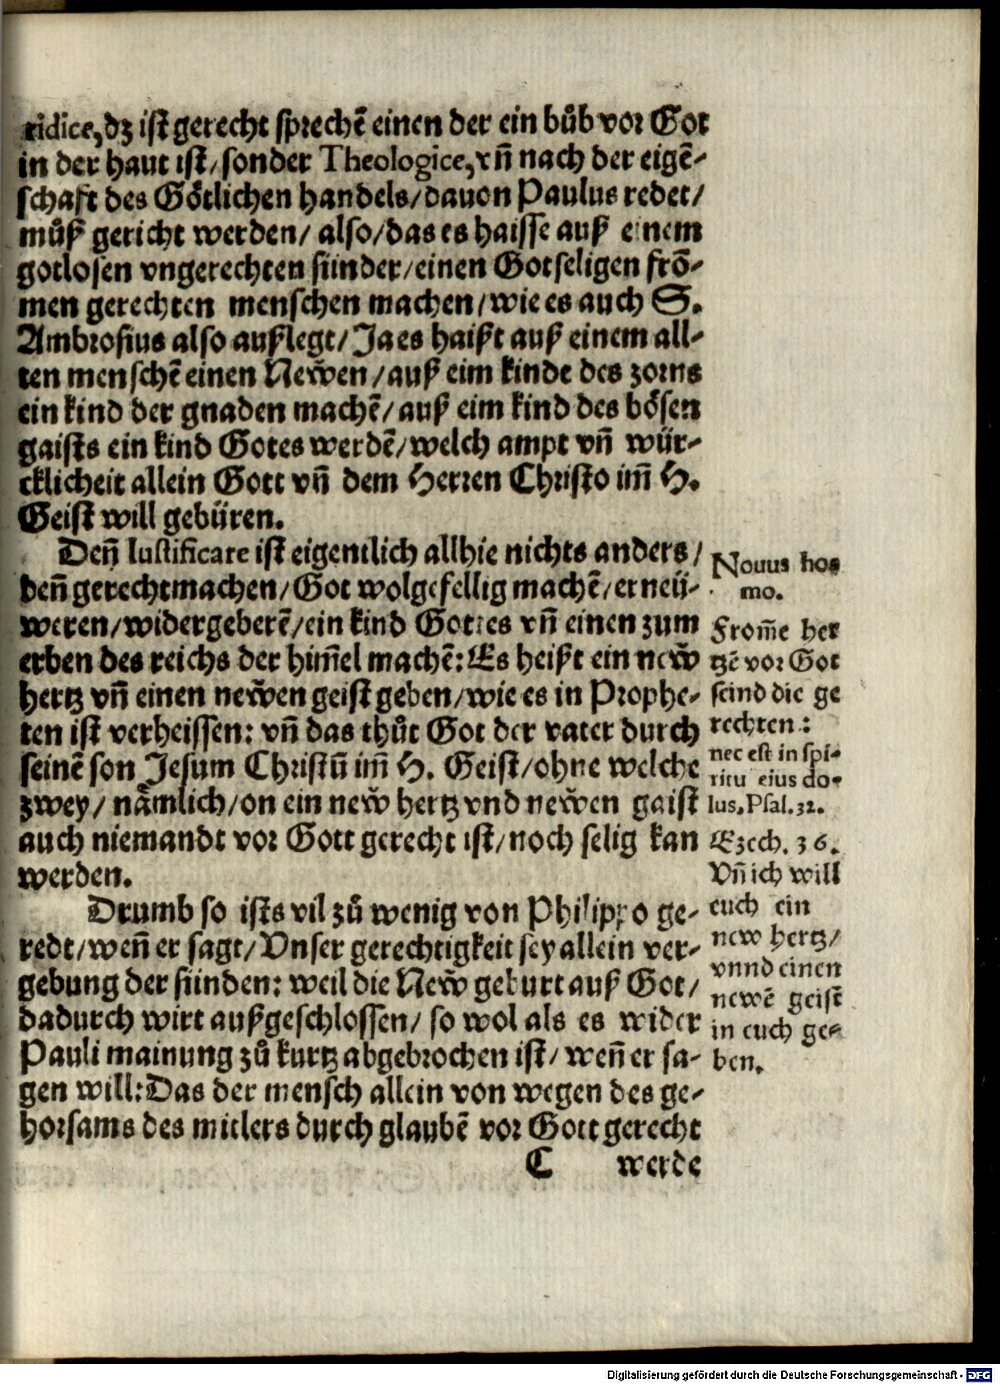 ridice, dz ist gerecht sprechē einen der ein bůb vor Got
in der haut ist/ sonder Theologice, vñ nach der eigē-
schaft des Götlichen handels/ dauon Paulus redet/
můß gericht werden/ also/ das es haisse auß einem
gotlosen vngerechten sünder/ einen Gotseligen frō-
men gerechten menschen machen/ wie es auch S.
Ambrosius also außlegt/ Ja es haißt auß einem all-
ten menschē einen Newen/ auß eim kinde des zorns
ein kind der gnaden machē/ auß eim kind des bösen
gaists ein kind Gotes werdē/ welch ampt vñ wür-
cklicheit allein Gott vñ dem Herren Christo im̄ H.
Geist will gebüren.
Deñ Iustificare ist eigentlich allhie nichts anders/
deñ gerechtmachen/ Got wolgefellig machē/ erneü-
weren/ widergeberē/ ein kind Gottes vñ einen zum
erben des reichs der him̄el machē: Es heißt ein new
hertz vñ einen newen geist geben/ wie es in Prophe-
ten ist verheissen: vñ das thůt Got der vater durch
seinē son Jesum Christū im̄ H. Geist/ ohne welche
zwey/ nämlich/ on ein new hertz vnd newen gaist
auch niemandt vor Gott gerecht ist/ noch selig kan
werden.
Drumb so ists vil zů wenig von Philippo ge-
redt/ weñ er sagt/ Vnser gerechtigkeit sey allein ver-
gebung der sünden: weil die New geburt auß Got/
dadurch wirt außgeschlossen/ so wol als es wider
Pauli mainung zů kurtz abgebrochen ist/ weñ er sa-
gen will: Das der mensch allein von wegen des ge-
horsams des mitlers durch glaubē vor Gott gerecht
C werde
Nouus ho-
mo.
From̄e her
tzē vor Got
seind die ge
rechten:
nec est in spi-
ritu eius do-
lus. Psal. 32.
Ezech. 36.
Vñ ich will
euch ein
new hertz/
vnnd einen
newē geist
in euch ge-
ben.
Digitalisierung gefördert durch die Deutsche Forschungsgemeinschaft - DFG